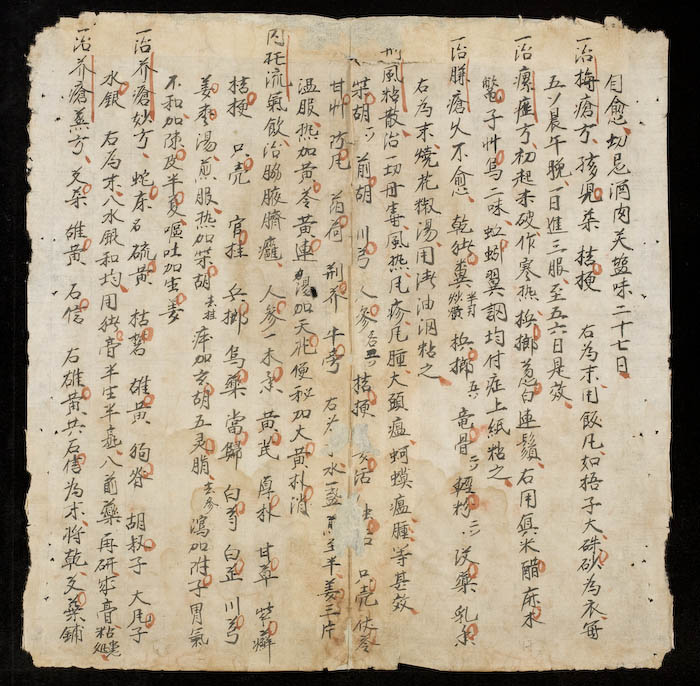 自愈切忌酒肉夫鹽味二十七日
一治梅瘡方孩児茶 桔梗 右為末用飯丸如捂子大硃砂為衣每
五〃晨午晚一日進三服至五六日是效
一治瘰癧方初起未破作寒熱 梹榔 葱白連鬚右用真米醋麻木
鱉子草烏二味 調均付症上紙粘之
一治臁瘡久不愈 乾猪糞 梹榔 竜骨 輕粉 没藥 乳香
右為末燒花椒湯用洗油調粘之
荊風粘散治一切丹毒風熱風疹风腫大頭瘟蚵蟆瘟腫等甚效
柴胡 前胡 川芎 人參 桔梗 活 只壳 伏苓
甘艸 防风 荷 荊芥 牛蒡 右 水一盞煎至半姜三片
温服熱加黃芩黃連湯加天花便秘加大黃朴消
内托流氣飲治腦腋臍癰 人參 木香 黃芪 厚朴 甘草 紫蘇
桔梗 只壳 官桂 兵榔 烏藥 當歸 白芍 白芷 川芎
姜棗湯煎服熱加柴胡去桂 痒加玄胡五灵脂去參 瀉加附子胃氣
不和加陳皮半夏嘔吐加生姜
一治疥瘡妙方 蛇床 石硫黃 枯礬 雄黃 狗脊 胡椒子 大风子
水銀 右為末入水銀和均用猪膏半生半熟入前藥再研成膏粘患處
一治疥瘡熏方 艾葉 雄黃 石信 右雄黃共石信為末將乾艾葉鋪